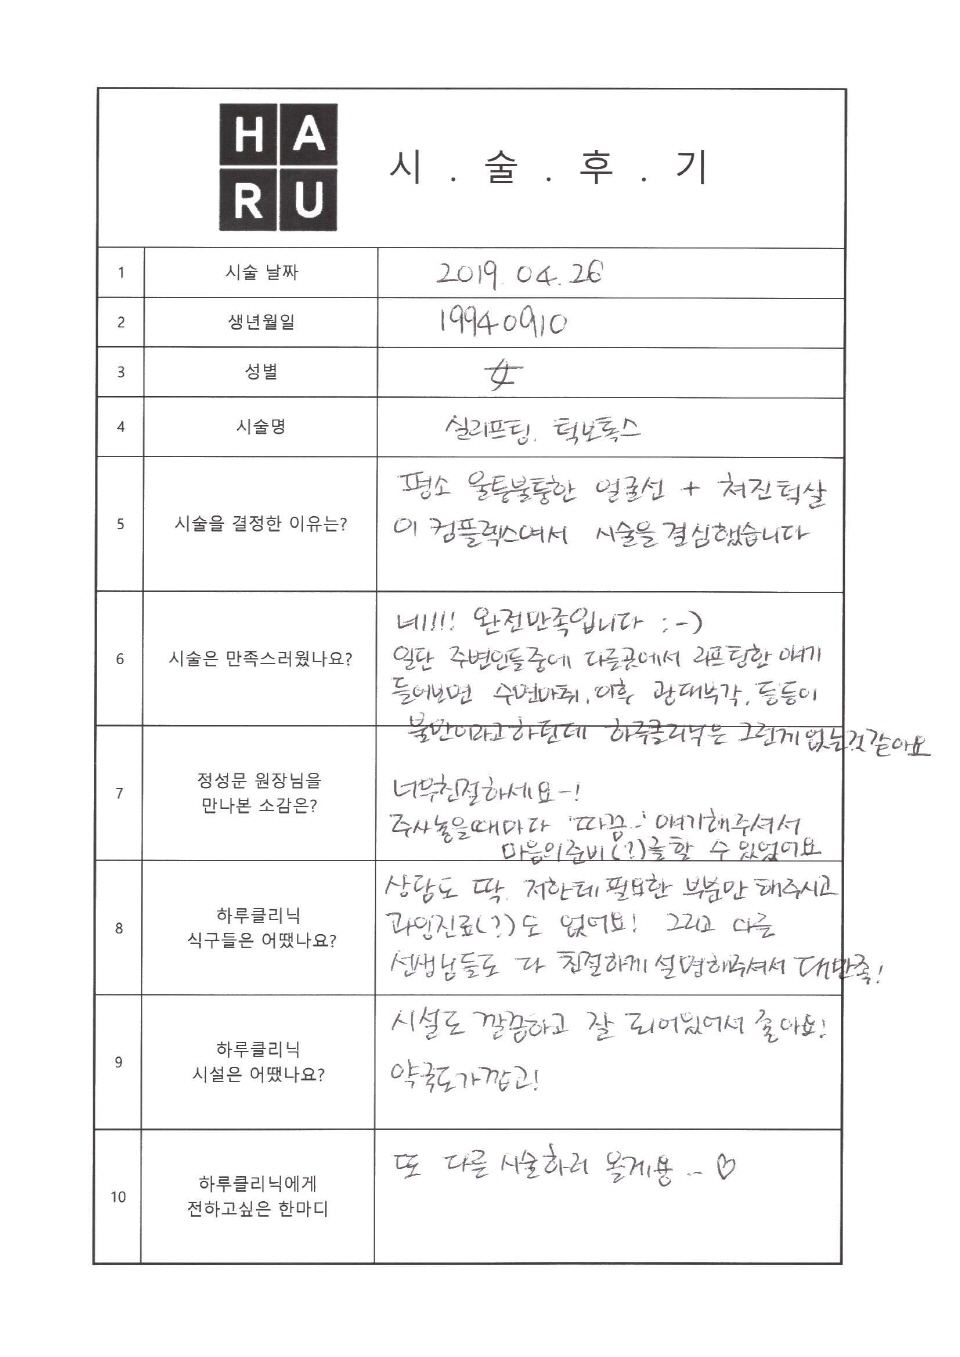 HA
RU
시 . 술 . 후 . 기
1 시술 날짜 2019. 04. 26
2 생년월일 19940910
3 성별 女
4 시술명 실리프팅, 턱보톡스
5 시술을 결정한 이유는?
평소 울퉁불퉁한 얼굴선 + 쳐진턱살
이 컴플렉스여서 시술을 결심했습니다
6 시술은 만족스러웠나요?
네!!!! 완전만족입니다 :-)
일단 주변인들중에 다른곳에서 리프팅한 얘기
들어보면 수면마취, 이후 광대부각, 등등이
불만이라고하던데 하루클리닉은 그런게없는것같아요
7 정성문 원장님을
만나본 소감은?
너무친절하세요~!
주사놓을때마다 '따끔~' 얘기해주셔서
마음의준비(?)를할 수 있었어요
8 하루클리닉
식구들은 어땠나요?
상담도 딱 저한테 필요한 부분만 해주시고
과잉진료(?)도 없어요! 그리고 다른
선생님들도 다 친절하게 설명해주셔서 대만족!
9 하루클리닉
시설은 어땠나요?
시설도 깔끔하고 잘 되어있어서 좋아요!
약국도가깝고!
10 하루클리닉에게
전하고싶은 한마디
또 다른 시술하러 올게용 ~ ♡